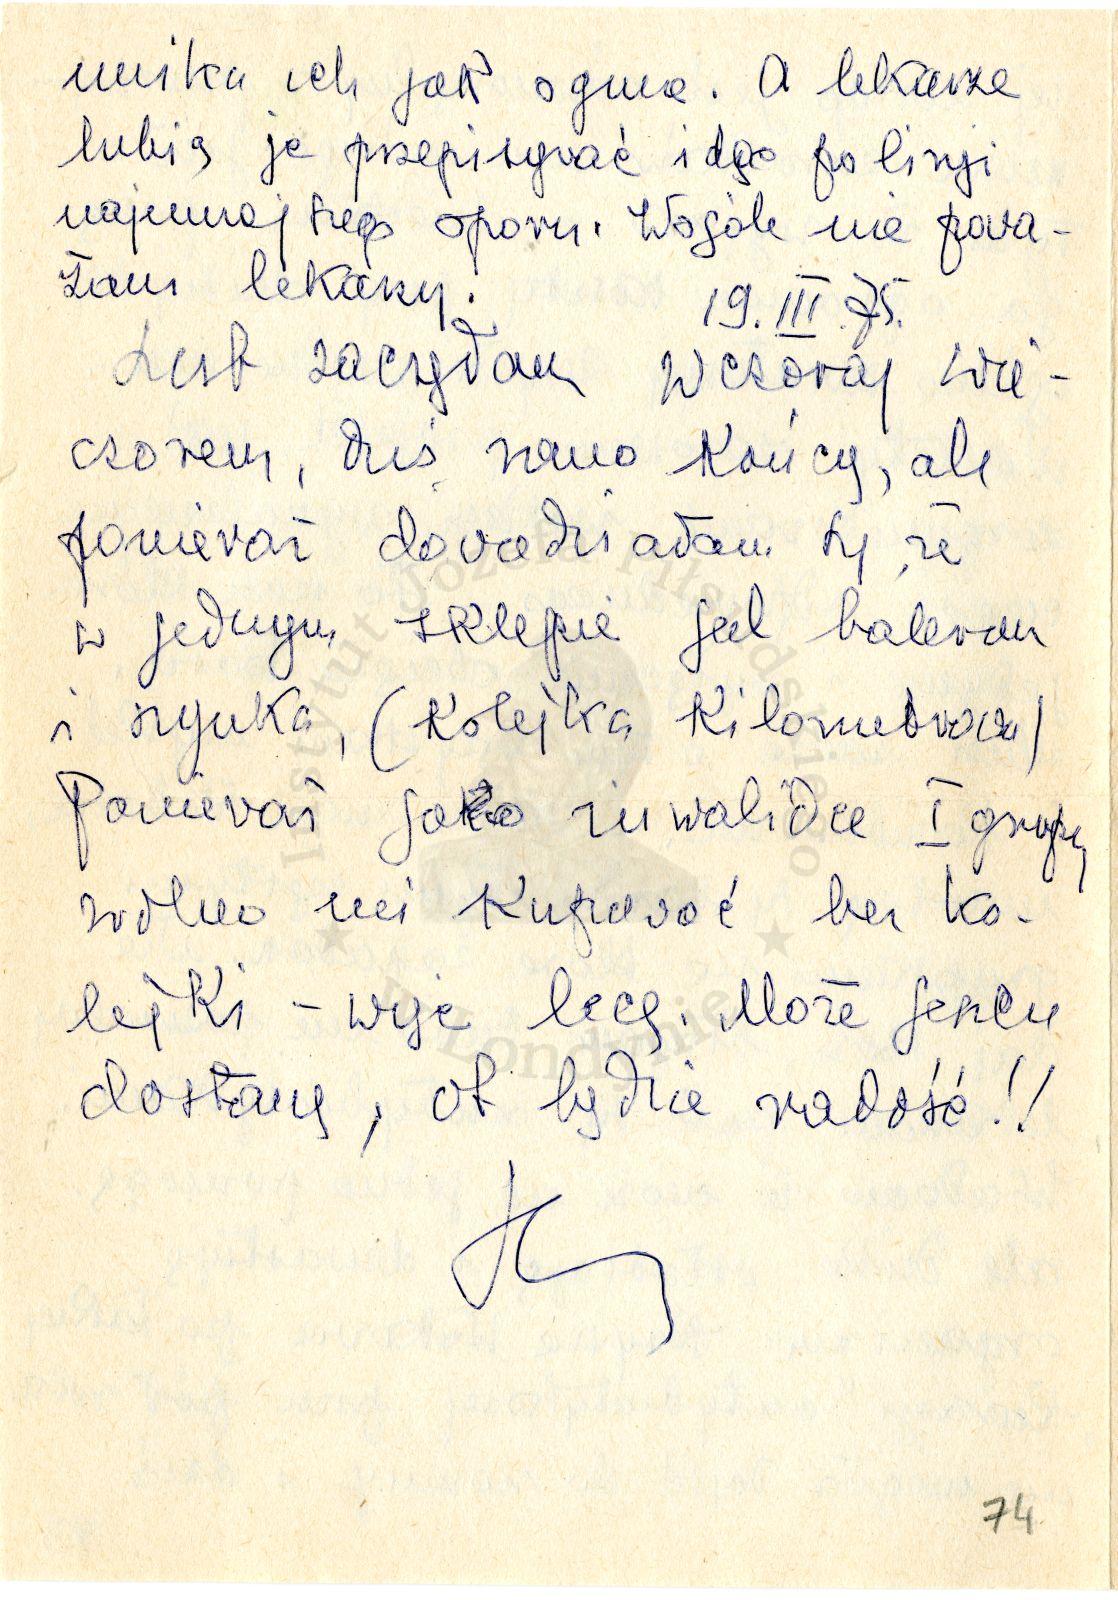 unika ich jak ognia. A lekarze
lubią je przepisywać idąc po linji
najmniejszego oporu. Wogóle nie powa-
żam lekarzy!
19.III.75.
List zaczęłam wczoraj wie-
czorem, dziś rano kończę, ale
ponieważ dowiedziałam się, że
w jednym sklepie jest baleron
i szynka, (kolejka kilometrowa)
Ponieważ jako inwalidce I grupy
wolno mi kupować bez ko-
lejki – więc lecę. Może jeszcze
dostanę, ot będzie radość!!
74
Instytut Józefa Piłsudskiego
w Londynie